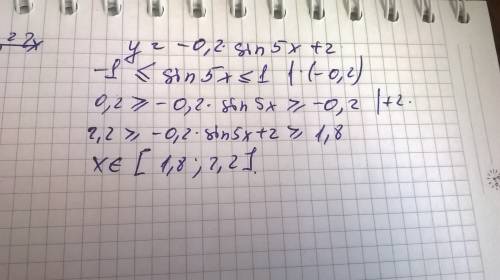 y = -0,2·sin5x+2
-1 ≤ sin5x ≤ 1 |·(-0,2)
0,2 ≥ -0,2·sin5x ≥ -0,2 |+2.
2,2 ≥ -0,2·sin5x+2 ≥ 1,8
x∈[1,8; 2,2].